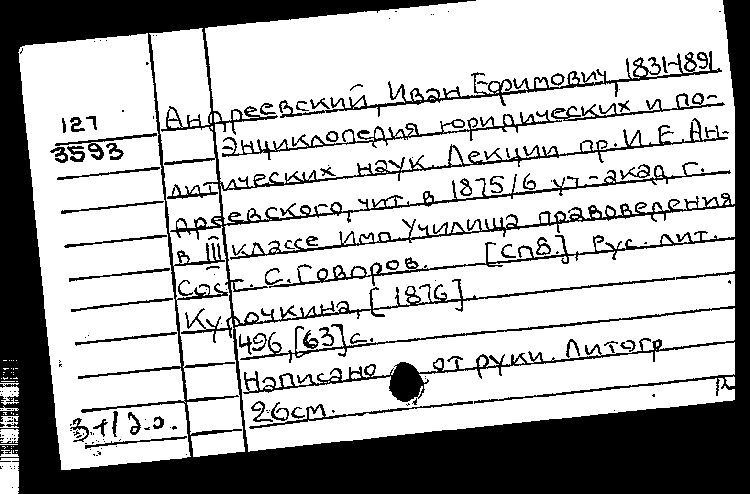 Андреевский, Иван Ефимович, 1831-1891
127
3593
Энциклопедия юридических и по-
литических наук. Лекции пр. И. Е. Ан-
дреевского, чит. в 1875/6 уч.-акад. г.
в III классе Имп Училища правоведения
Сост. С. Говоров. [Спб.], Рус. лит.
Курочкина, [1876].
496, [63] с.
Написано от руки. Литогр
26см.